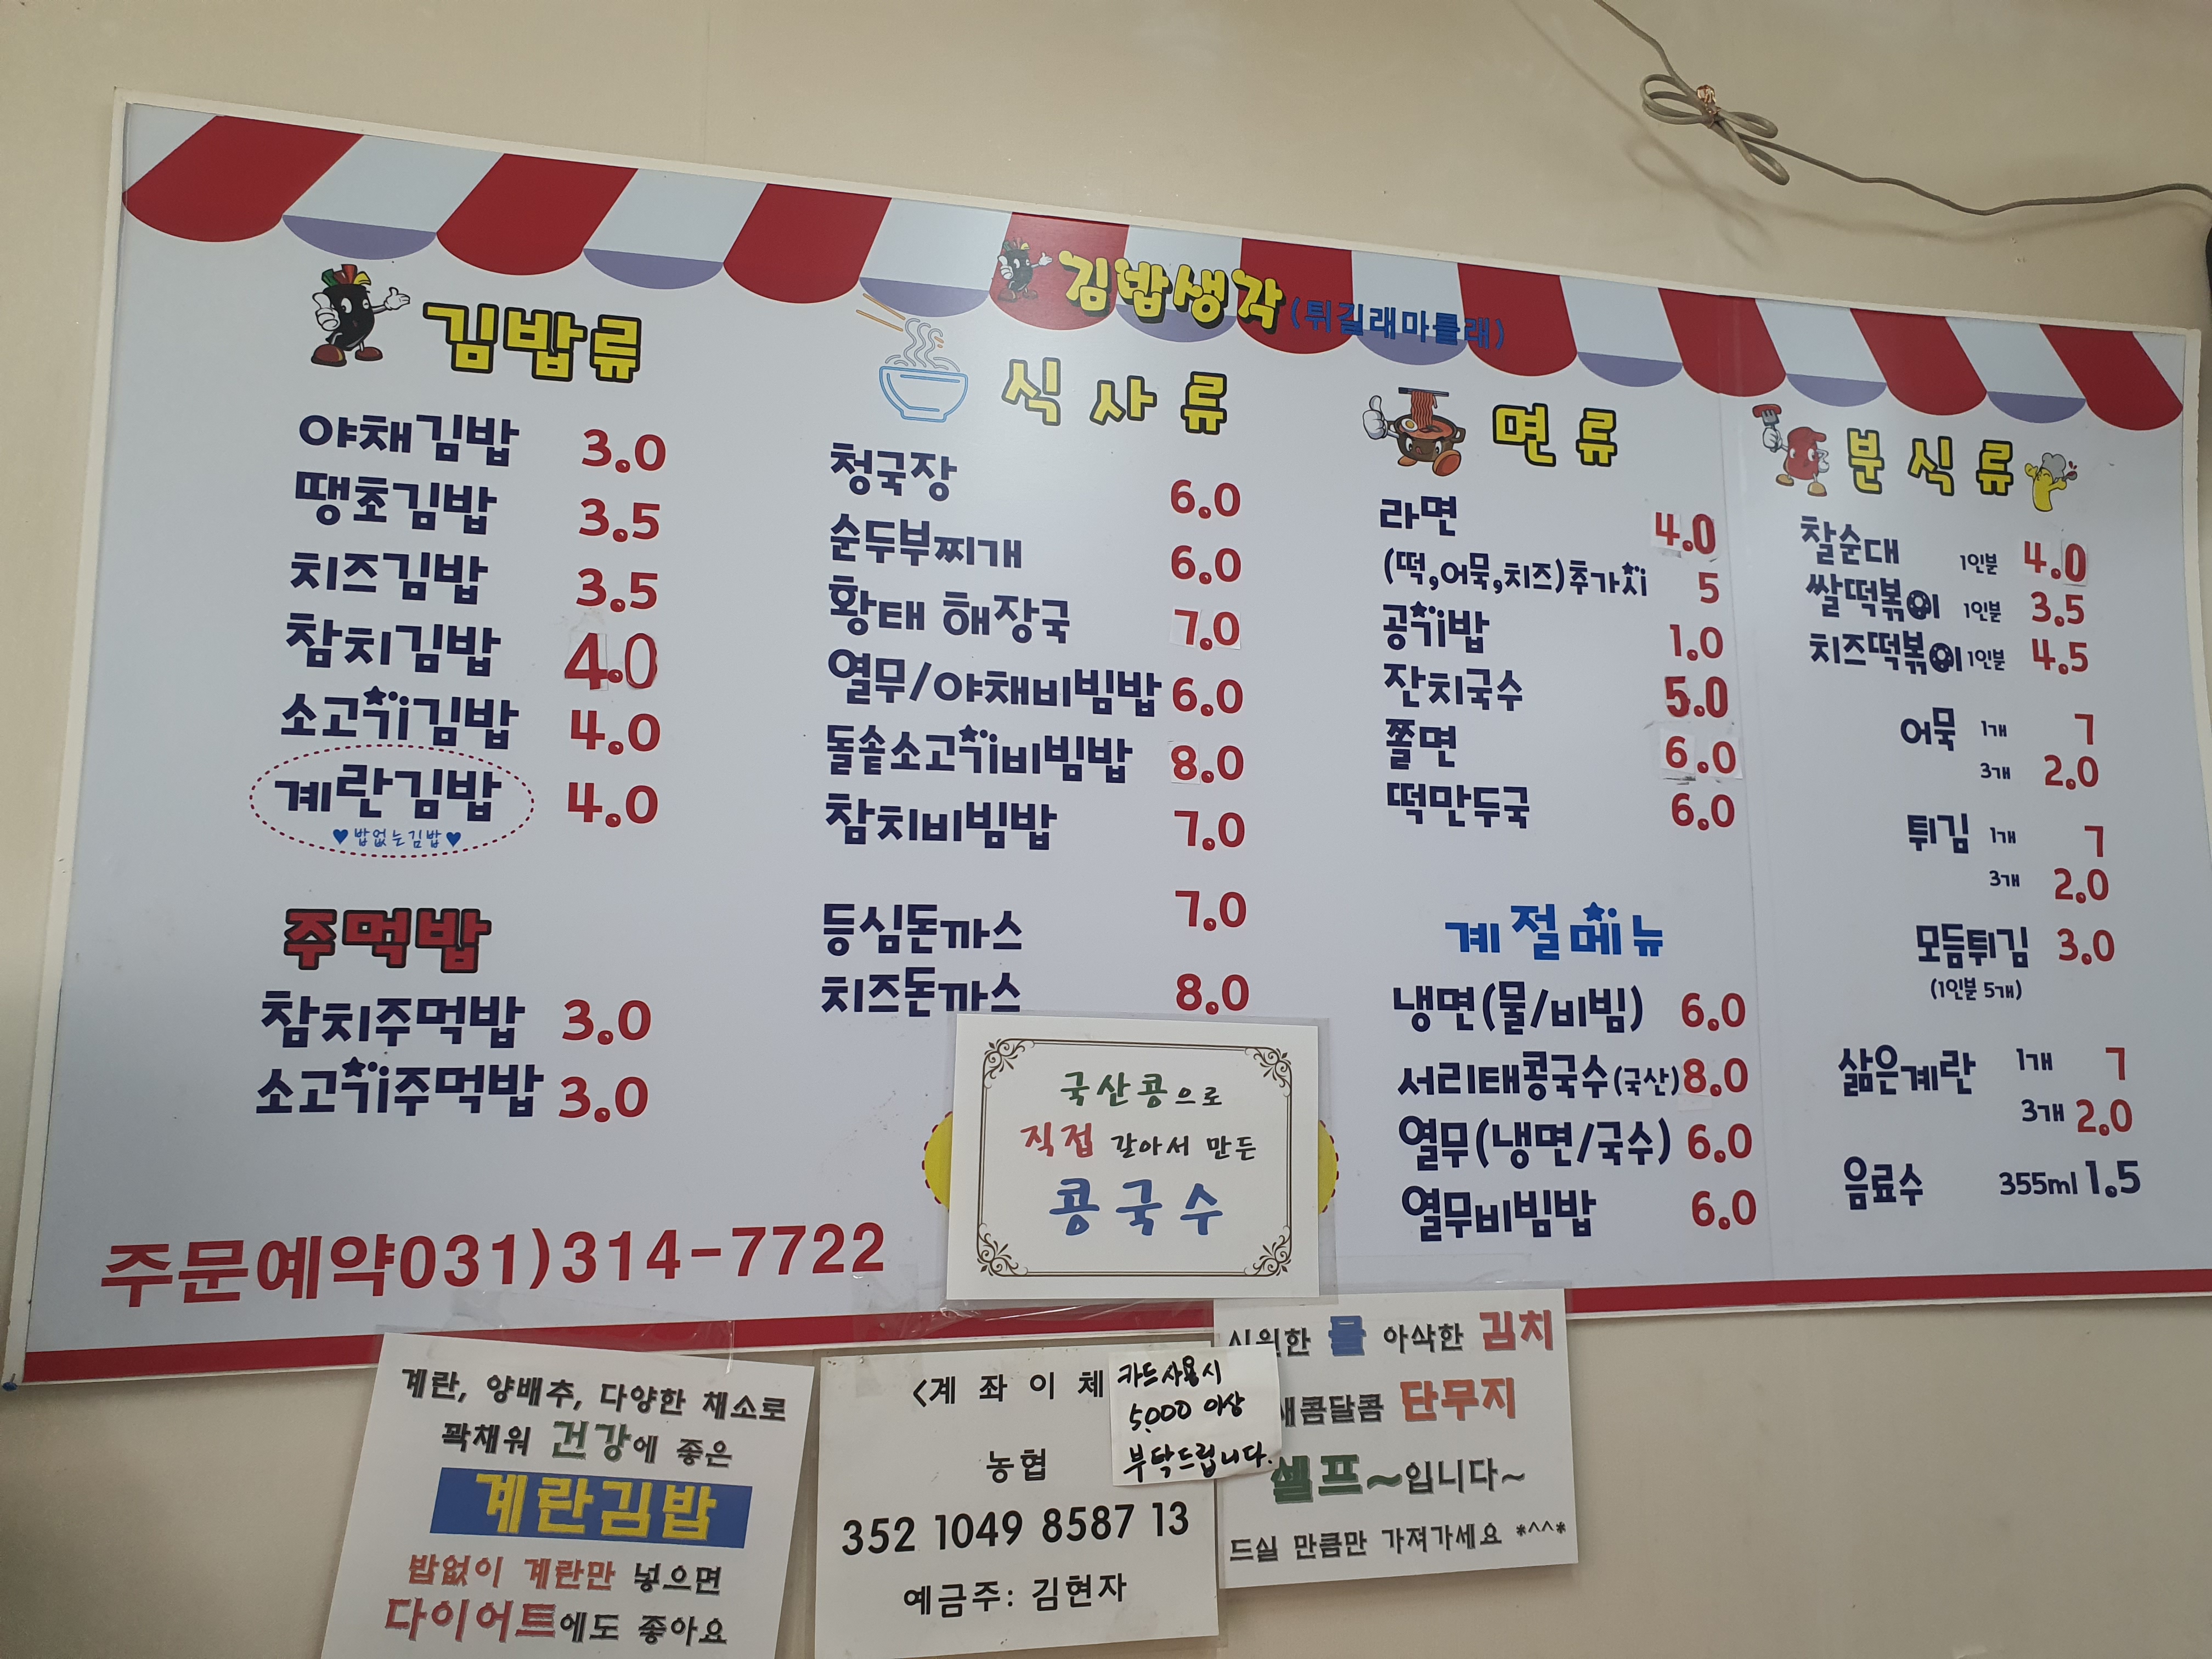 김밥생각(튀길래마를래)
김밥류
야채김밥 3.0
땡초김밥 3.5
치즈김밥 3.5
참치김밥 4.0
소고기김밥 4.0
계란김밥 4.0
♥밥없는김밥♥
주먹밥
참치주먹밥 3.0
소고기주먹밥 3.0
식사류
청국장 6.0
순두부찌개 6.0
황태 해장국 7.0
열무/야채비빔밥 6.0
돌솥소고기비빔밥 8.0
참치비빔밥 7.0
등심돈까스 7.0
치즈돈까스 8.0
면류
라면 4.0
(떡,어묵,치즈)추가시 5
공기밥 1.0
잔치국수 5.0
쫄면 6.0
떡만두국 6.0
계절메뉴
냉면(물/비빔) 6.0
서리태콩국수(국산) 8.0
열무(냉면/국수) 6.0
열무비빔밥 6.0
분식류
찰순대 1인분 4.0
쌀떡볶이 1인분 3.5
치즈떡볶이 1인분 4.5
어묵 1개 7
3개 2.0
튀김 1개 7
3개 2.0
모듬튀김 3.0
(1인분 5개)
삶은계란 1개 7
3개 2.0
음료수 355ml 1.5
국산콩으로
직접 갈아서 만든
콩국수
주문예약031)314-7722
계란, 양배추, 다양한 채소로
꽉채워 건강에 좋은
계란김밥
밥없이 계란만 넣으면
다이어트에도 좋아요
<계 좌 이 체
농협
352 1049 8587 13
예금주: 김현자
카드사용시
5,000 이상
부탁드립니다.
시원한 물 아삭한 김치
새콤달콤 단무지
셀프~입니다~
드실 만큼만 가져가세요 *^^*